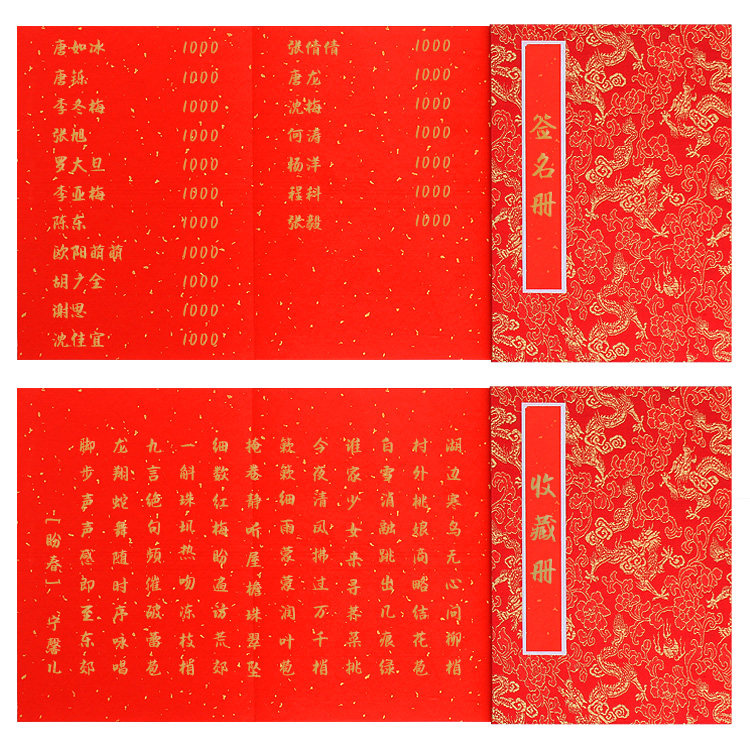 唐如冰 1000
唐铄 1000
李冬梅 1000
张旭 1000
罗大旦 1000
李亚梅 1000
陈东 1000
欧阳萌萌 1000
胡广全 1000
谢思 1000
沈佳宜 1000
张倩倩 1000
唐龙 1000
沈梅 1000
何涛 1000
杨洋 1000
程科 1000
张毅 1000
签名册
湖边寒鸟无心问柳梢
村外桃娘商略结花苞
白雪消融跳出几痕绿
谁家少女来寻荠菜挑
今夜清风拂过万千梢
簌簌细雨蒙蒙润叶苞
掩卷静听屋檐珠翠坠
细数红梅盼遍访荒郊
一斛珠玑热吻冻枝梢
九言绝句频催破蕾苞
龙翔蛇舞随时序咏唱
脚步声声感即至东郊
-[盼春]- 宁馨儿
收藏册